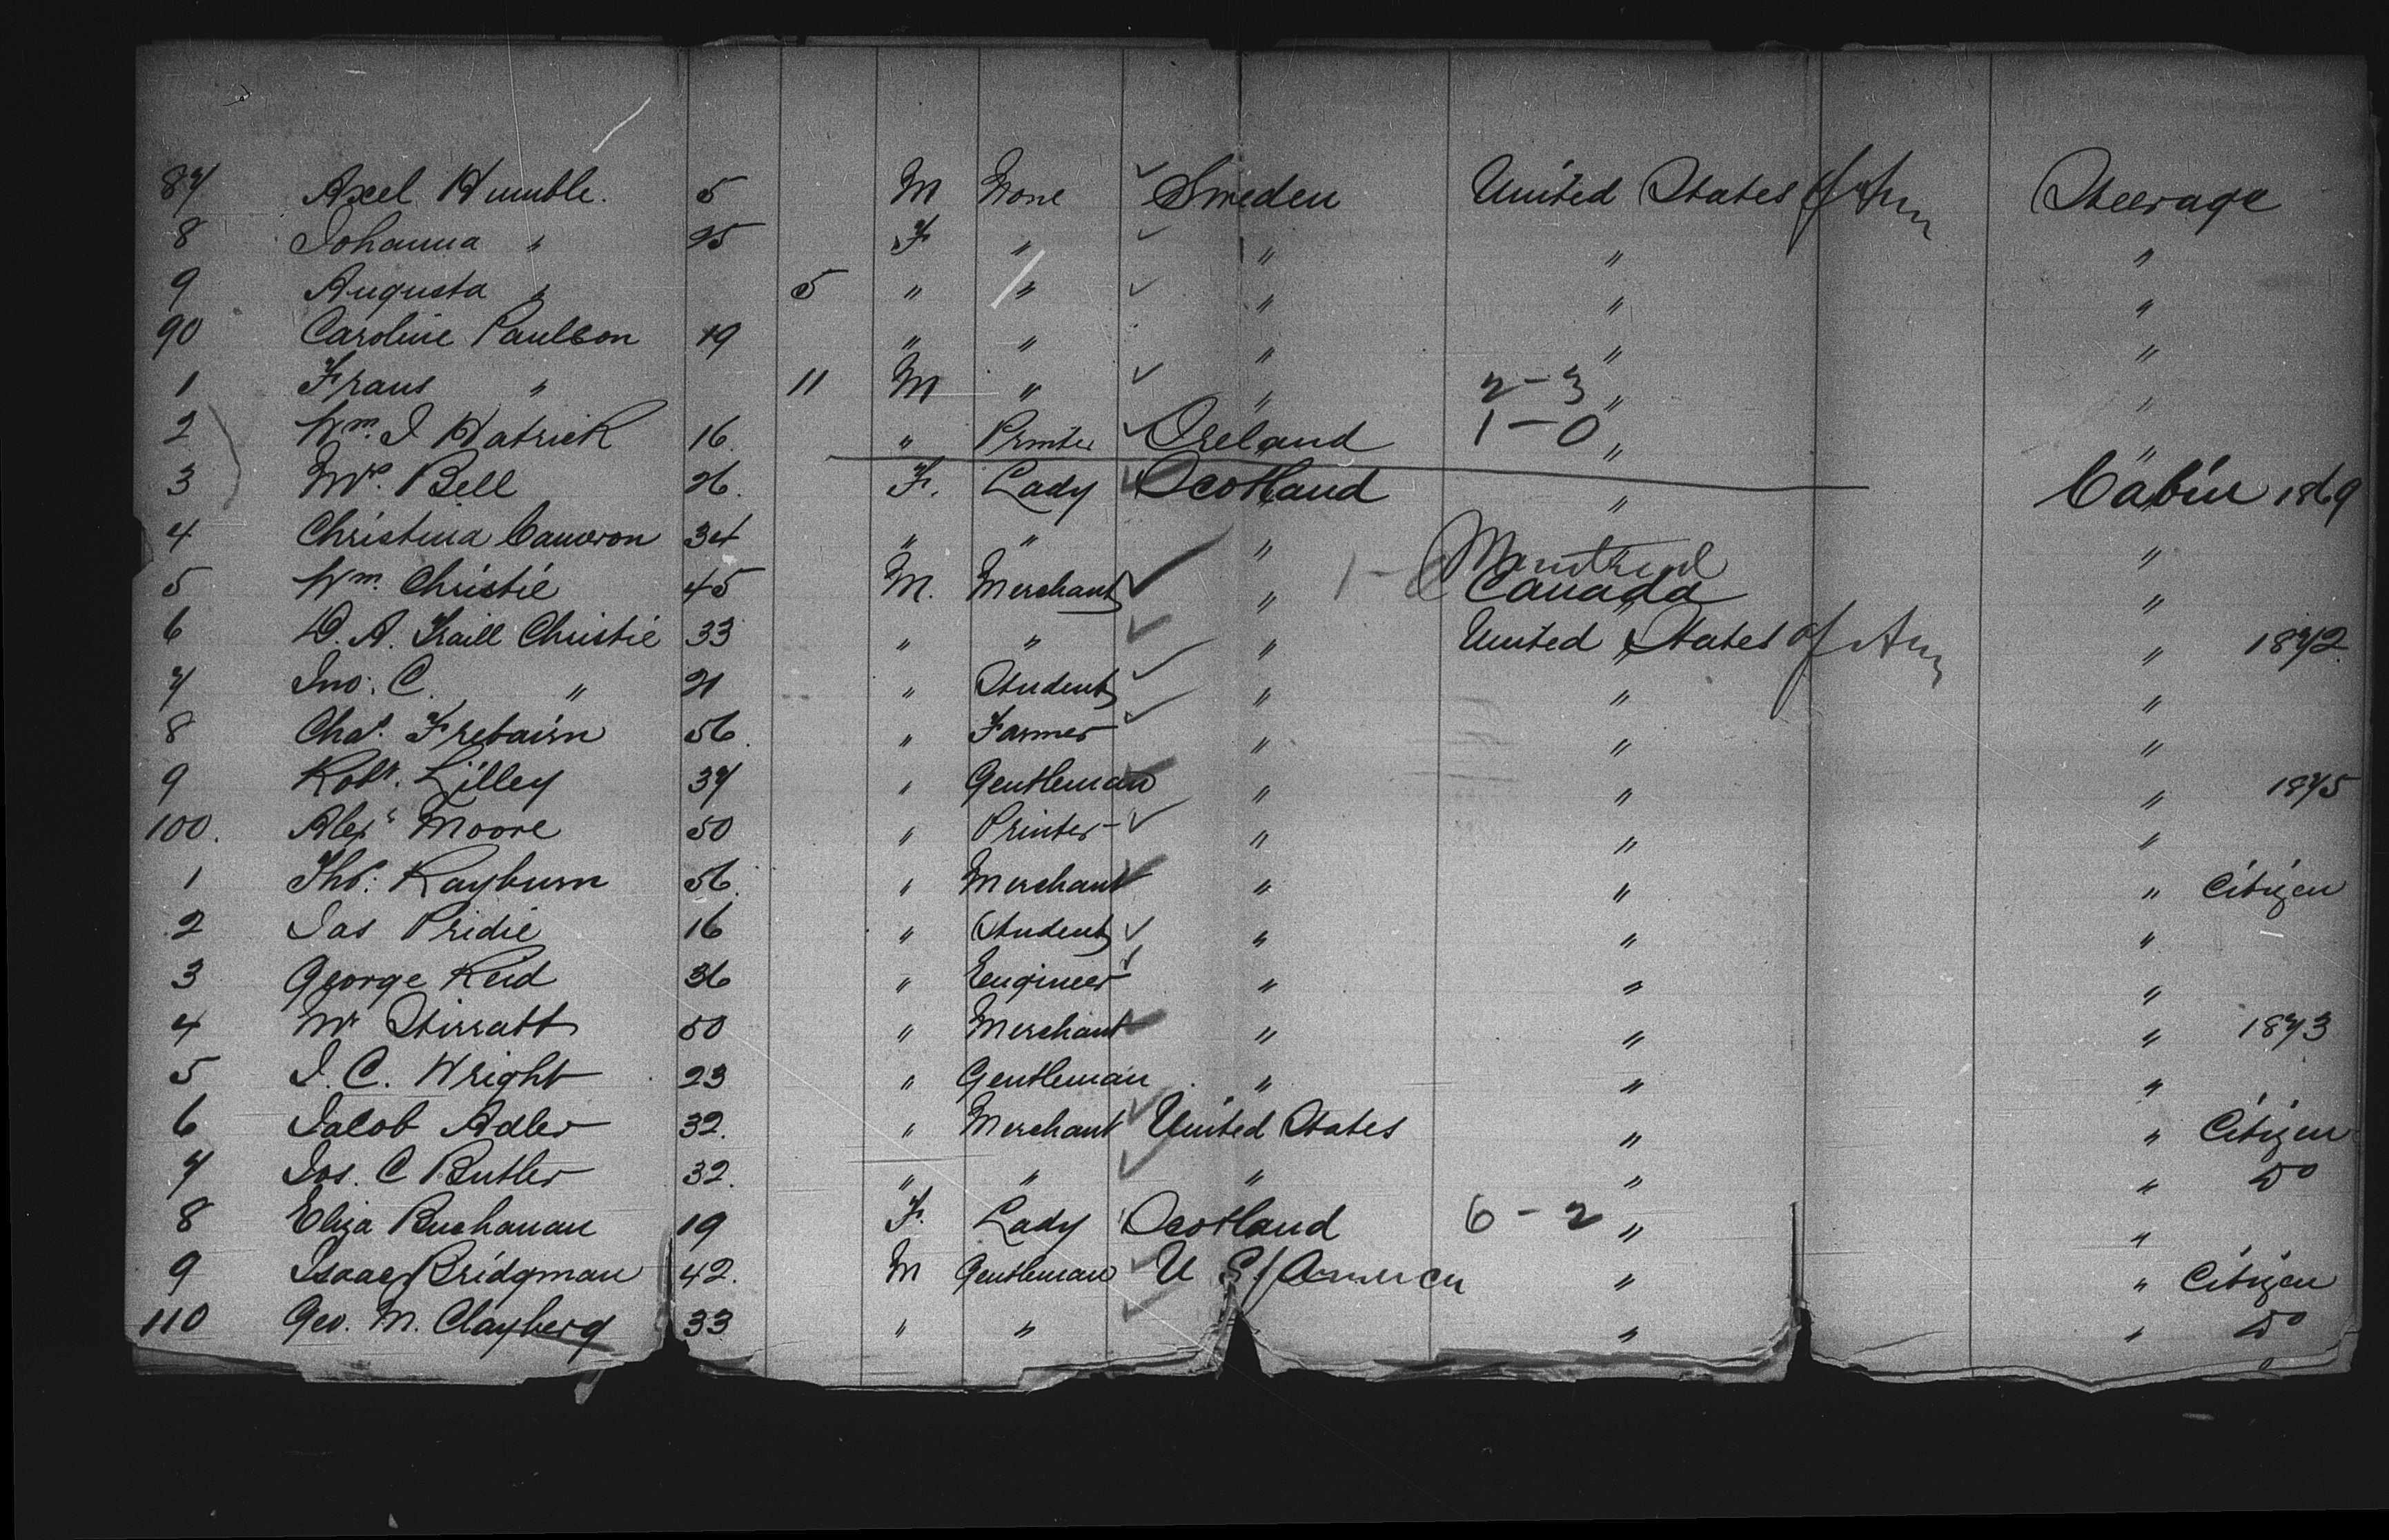 87 Axel Humble. 5 M None ✓ Sweden United States of Am Steerage
8 Johanna " 25 F " ✓ " " "
9 Augusta " 5 " " ✓ " " "
90 Caroline Paulson 19 " " " " "
1 Frans " 11 M " ✓ " 2-3 " "
2 Wm. J Hatrick 16. " Printer ✓ Ireland 1-0 " "
3 Mrs. Bell 26. F. Lady ✓ Scotland " Cabin 1869
4 Christina Cameron 34 " " " Montreal "
5 Wm. Christie 45 M. Merchant ✓ " Canada "
6 D. A. Traill Christie 33 " " ✓ " United States of Am " 1872
7 Jno. C. " 21 " Student ✓ " " "
8 Chas. Frebairn 56. " Farmer ✓ " " "
9 Robt. Lilley 37 " Gentleman " " " 1875
100. Alexr Moore 50 " Printer ✓ " " "
1 Thos: Rayburn 56. " Merchant ✓ " " " Citizen
2 Jas Pridie 16 " Student ✓ " " "
3 George Reid 36 " Engineer ✓ " " "
4 Mr Stirratt 50 " Merchant ✓ " " " 1873
5 J. C. Wright 23 " Gentleman " " "
6 Jacob Adler 32. " Merchant ✓ United States " " Citizen
7 Jos. C Butler 32. " " ✓ " " " Do
8 Eliza Buchanan 19 F. Lady Scotland 6-2 " "
9 Isaac Bridgman 42. M Gentleman ✓ U S of America " " Citizen
110 Geo. M. Clayberg 33 " " ✓ " " Do